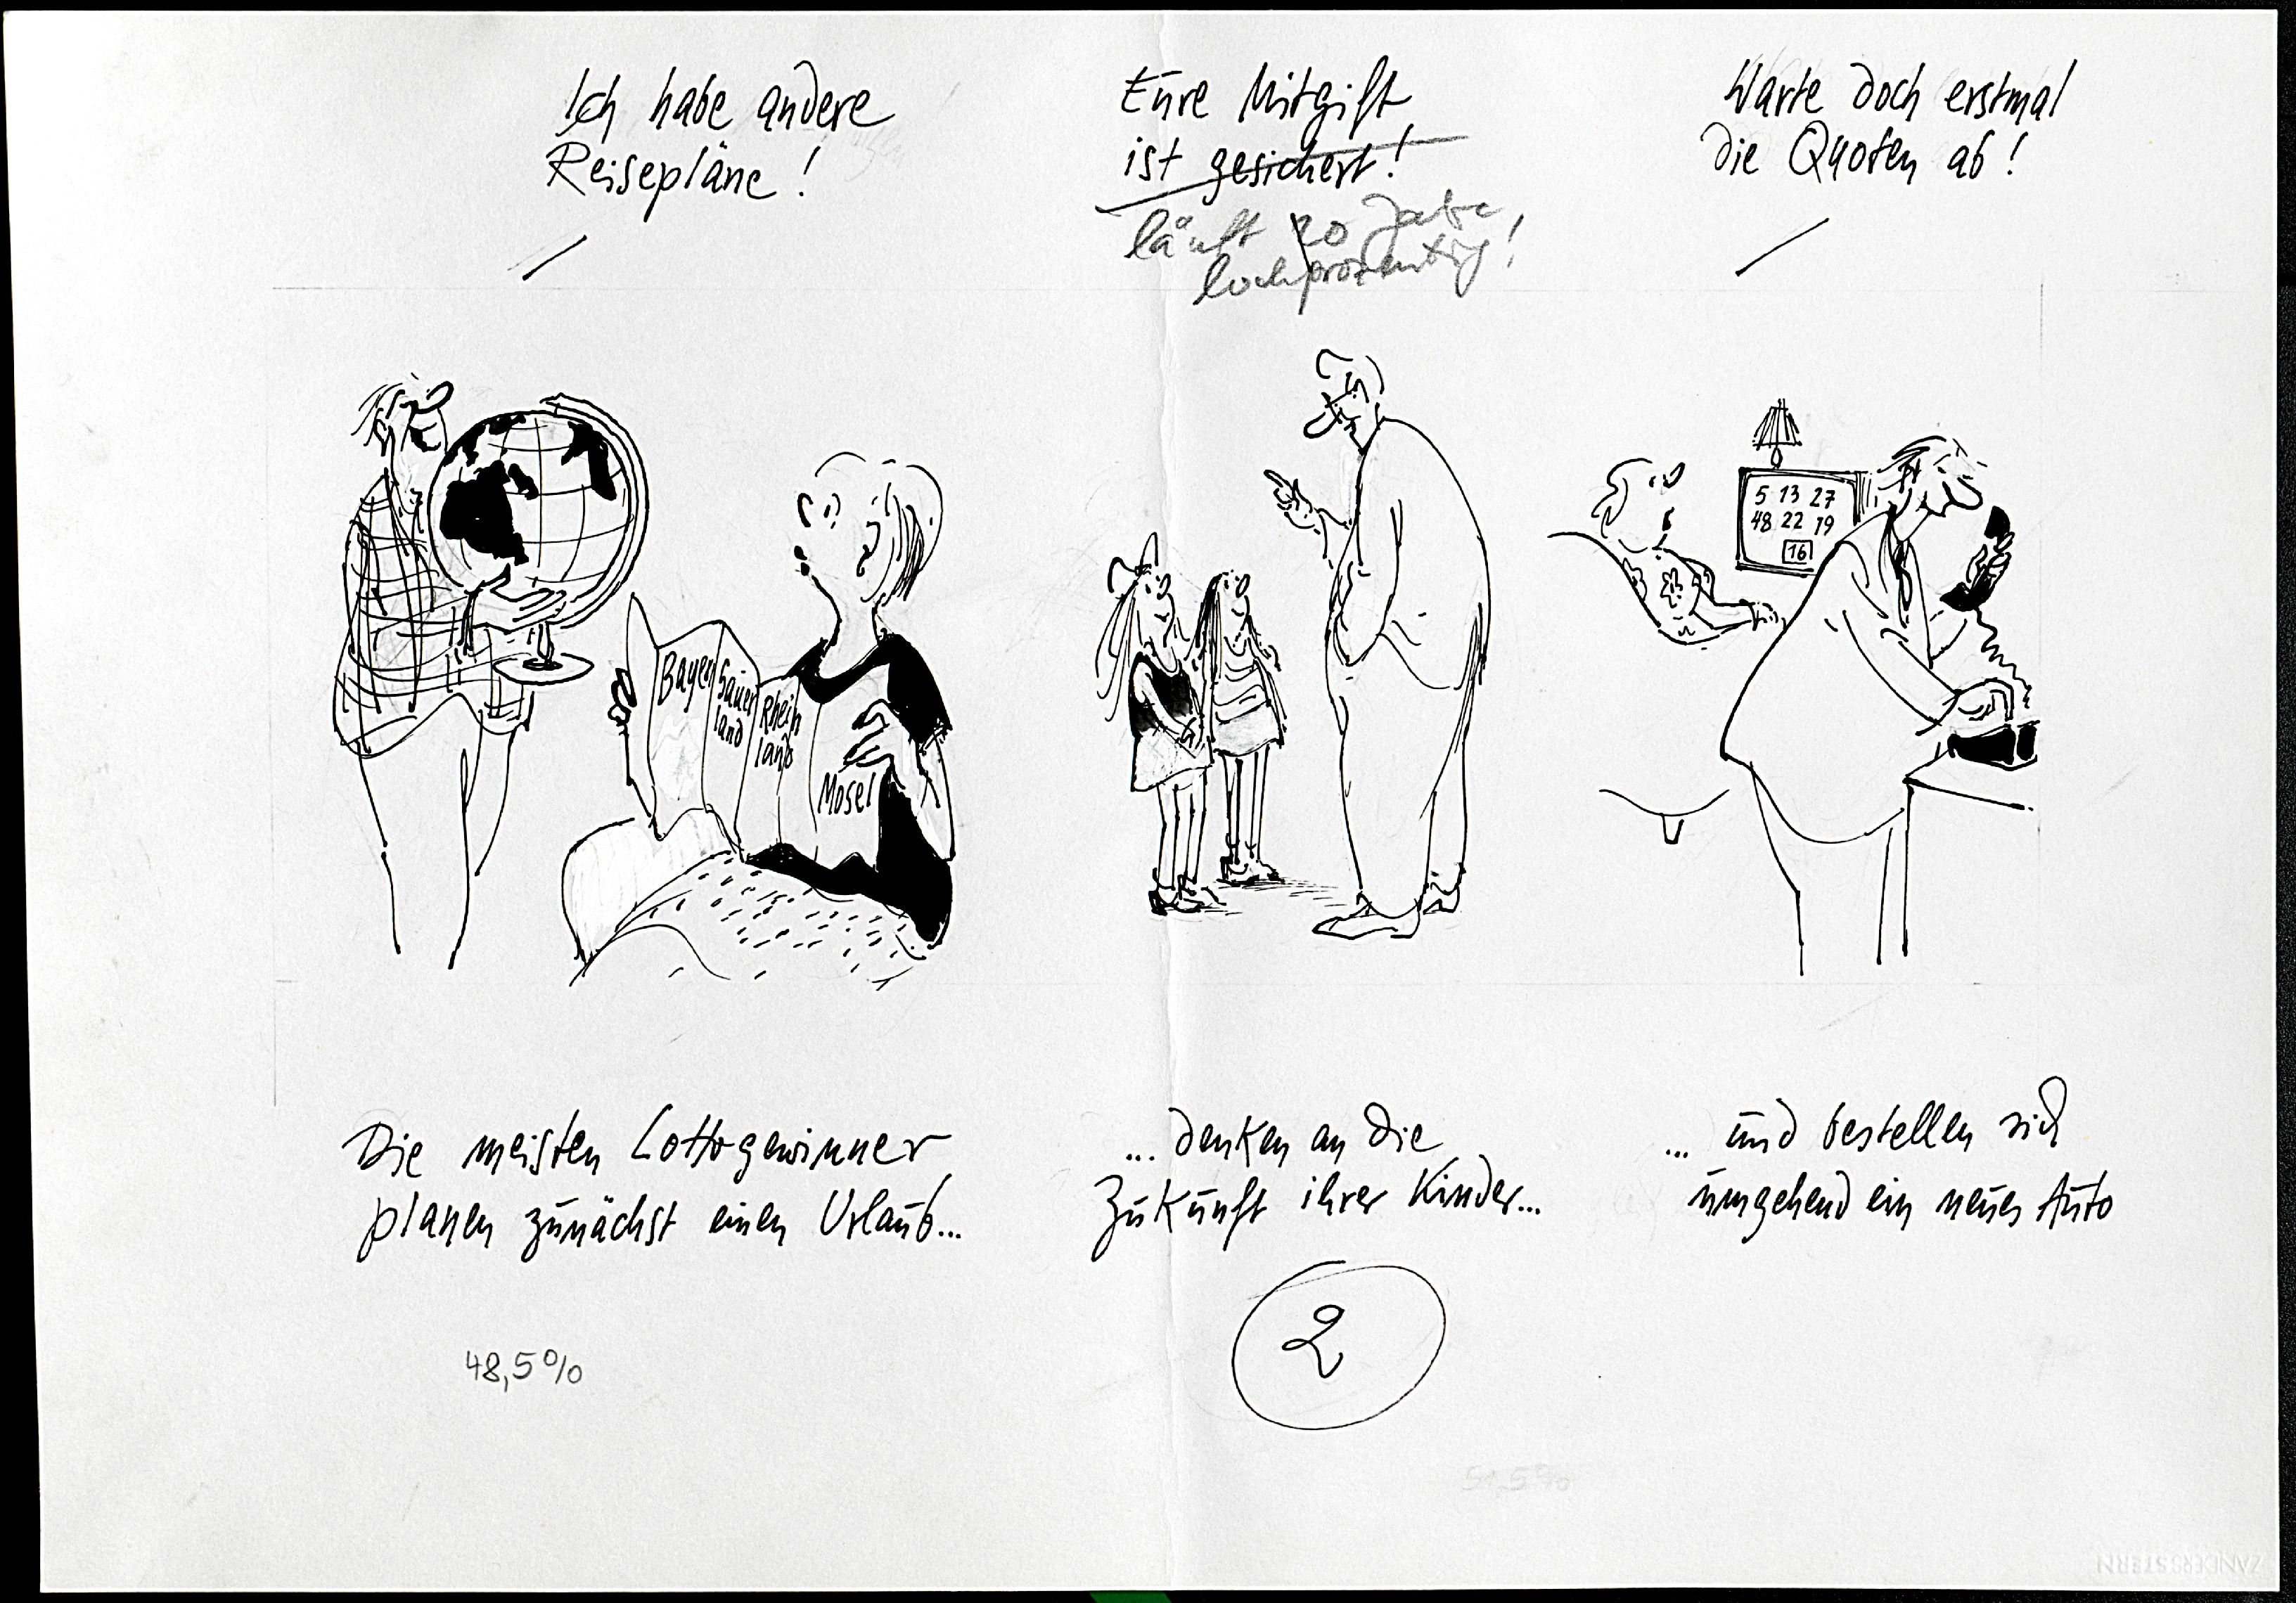 Ich habe andere
Reisepläne!
Eure Mitgift
ist gesichert!
läuft 20 Jahre
hochprozentig!
Warte doch erstmal
die Quoten ab!
Bayern
Sauer
land
Rhein
land
Mosel
5 13 27
48 22 19
16
Die meisten Lottogewinner
planen zunächst einen Urlaub...
... denken an die
Zukunft ihrer Kinder...
... und bestellen sich
umgehend ein neues Auto
48,5%
2
51,5%
ZANDERSSTERN